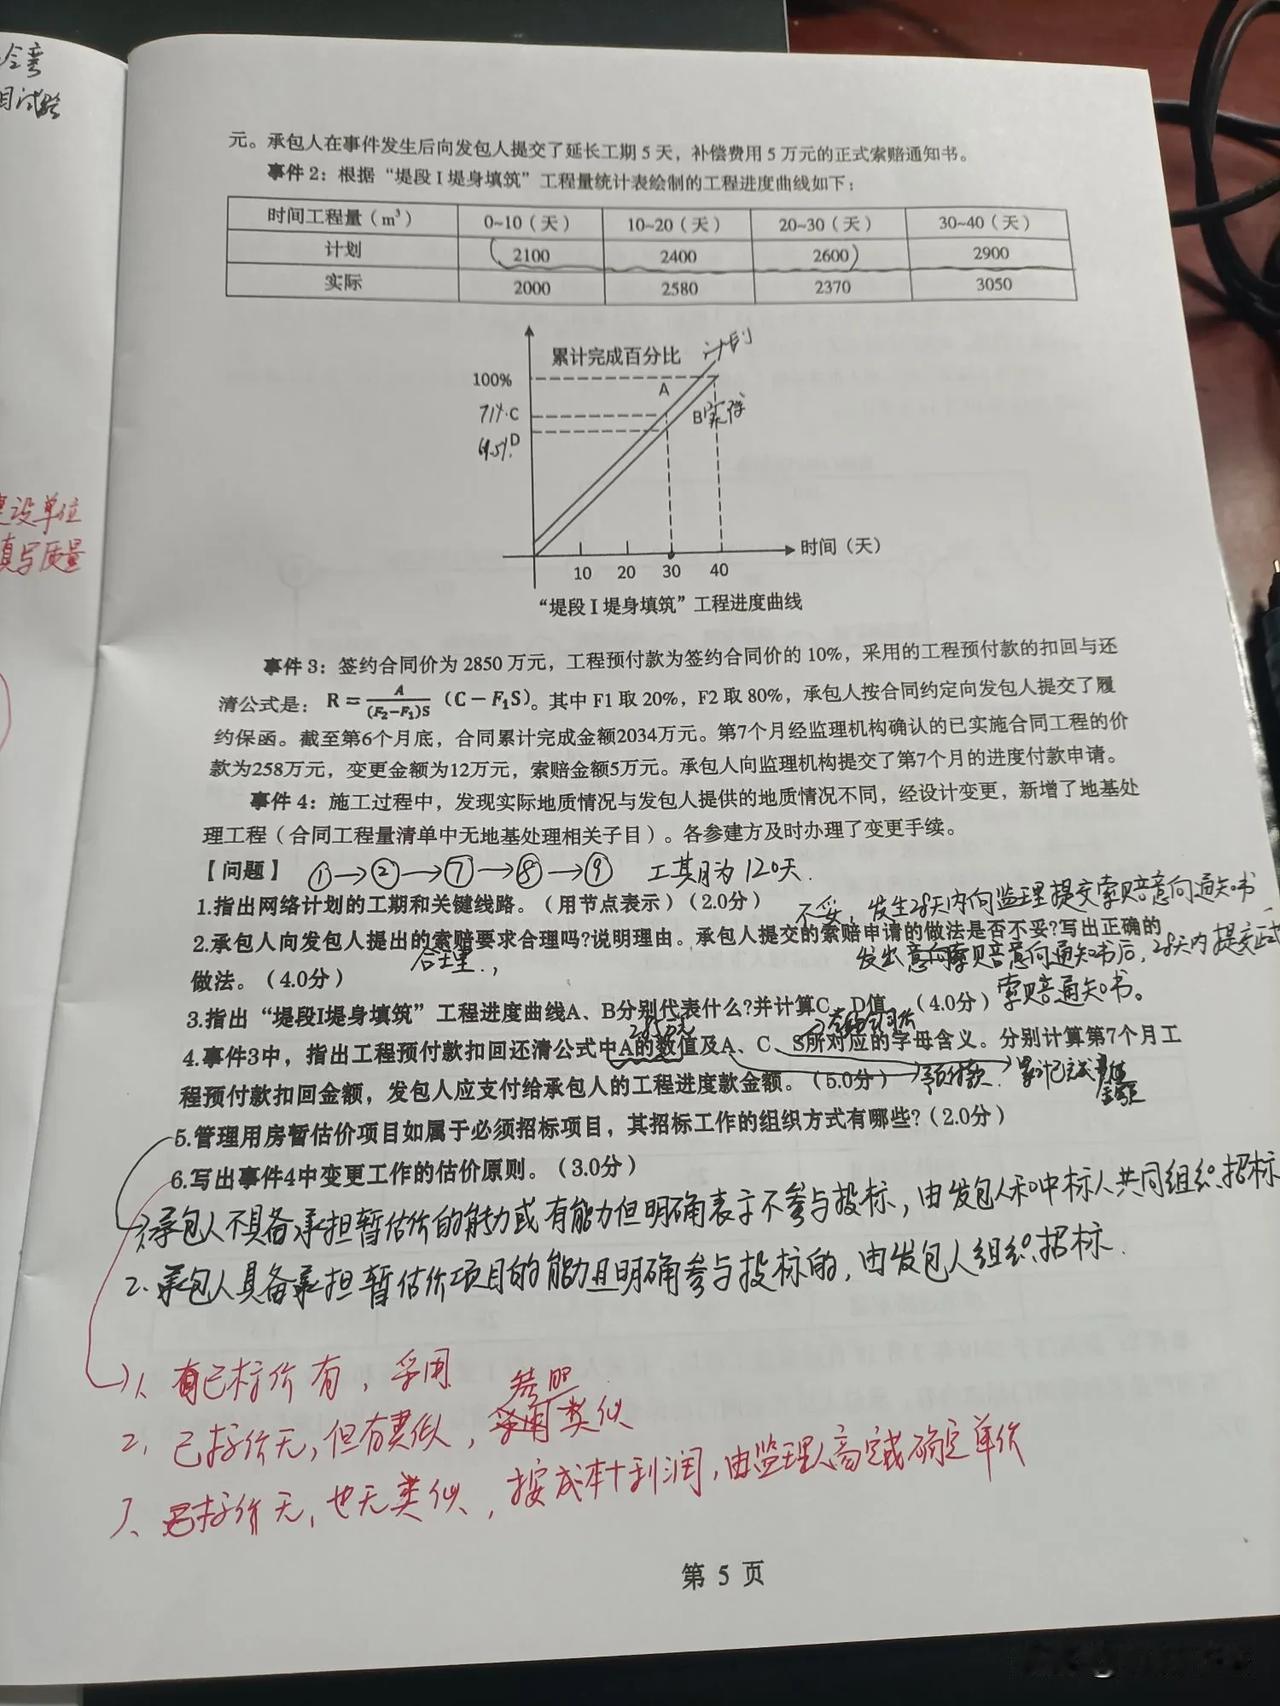 全奔
目试验
建设单位
填写质量
元。承包人在事件发生后向发包人提交了延长工期 5 天，补偿费用 5 万元的正式索赔通知书。
事件 2：根据“堤段 I 堤身填筑”工程量统计表绘制的工程进度曲线如下：
时间工程量（m³） 0~10（天） 10~20（天） 20~30（天） 30~40（天）
计划 2100 2400 2600 2900
实际 2000 2580 2370 3050
累计完成百分比 计划
100%
A
71% C
B 实际
69.5% D
时间（天）
10 20 30 40
“堤段 I 堤身填筑”工程进度曲线
事件 3：签约合同价为 2850 万元，工程预付款为签约合同价的 10%，采用的工程预付款的扣回与还
清公式是：R=A/(F₂−F₁)S（C－F₁S）。其中 F1 取 20%，F2 取 80%，承包人按合同约定向发包人提交了履
约保函。截至第6个月底，合同累计完成金额2034万元。第7个月经监理机构确认的已实施合同工程的价
款为258万元，变更金额为12万元，索赔金额5万元。承包人向监理机构提交了第7个月的进度付款申请。
事件 4：施工过程中，发现实际地质情况与发包人提供的地质情况不同，经设计变更，新增了地基处
理工程（合同工程量清单中无地基处理相关子目）。各参建方及时办理了变更手续。
【问题】 ①→②→⑦→⑧→⑨ 工期为120天.
1.指出网络计划的工期和关键线路。（用节点表示）（2.0分）
不妥，发生28天内向监理提交索赔意向通知书
2.承包人向发包人提出的索赔要求合理吗?说明理由。承包人提交的索赔申请的做法是否不妥?写出正确的
合理.， 发出意向索赔意向通知书后，28天内提交正式
做法。（4.0分）
索赔通知书。
3.指出“堤段I堤身填筑”工程进度曲线A、B分别代表什么?并计算C、D值。（4.0分）
285万元
4.事件3中，指出工程预付款扣回还清公式中A的数值及A、C、S所对应的字母含义。分别计算第7个月工
程预付款扣回金额，发包人应支付给承包人的工程进度款金额。（5.0分） 预付款. 累计已完成 金额
5.管理用房暂估价项目如属于必须招标项目，其招标工作的组织方式有哪些?（2.0分）
6.写出事件4中变更工作的估价原则。（3.0分）
1.承包人不具备承担暂估价的能力或有能力但明确表示不参与投标，由发包人和中标人共同组织招标
2.承包人具备承担暂估价项目的能力且明确参与投标的，由发包人组织招标.
1、有已标价有，采用
参照
2、已标价无，但有类似，采用类似
3、已标价无，也无类似，按成本+利润，由监理人商定或确定单价
第 5 页